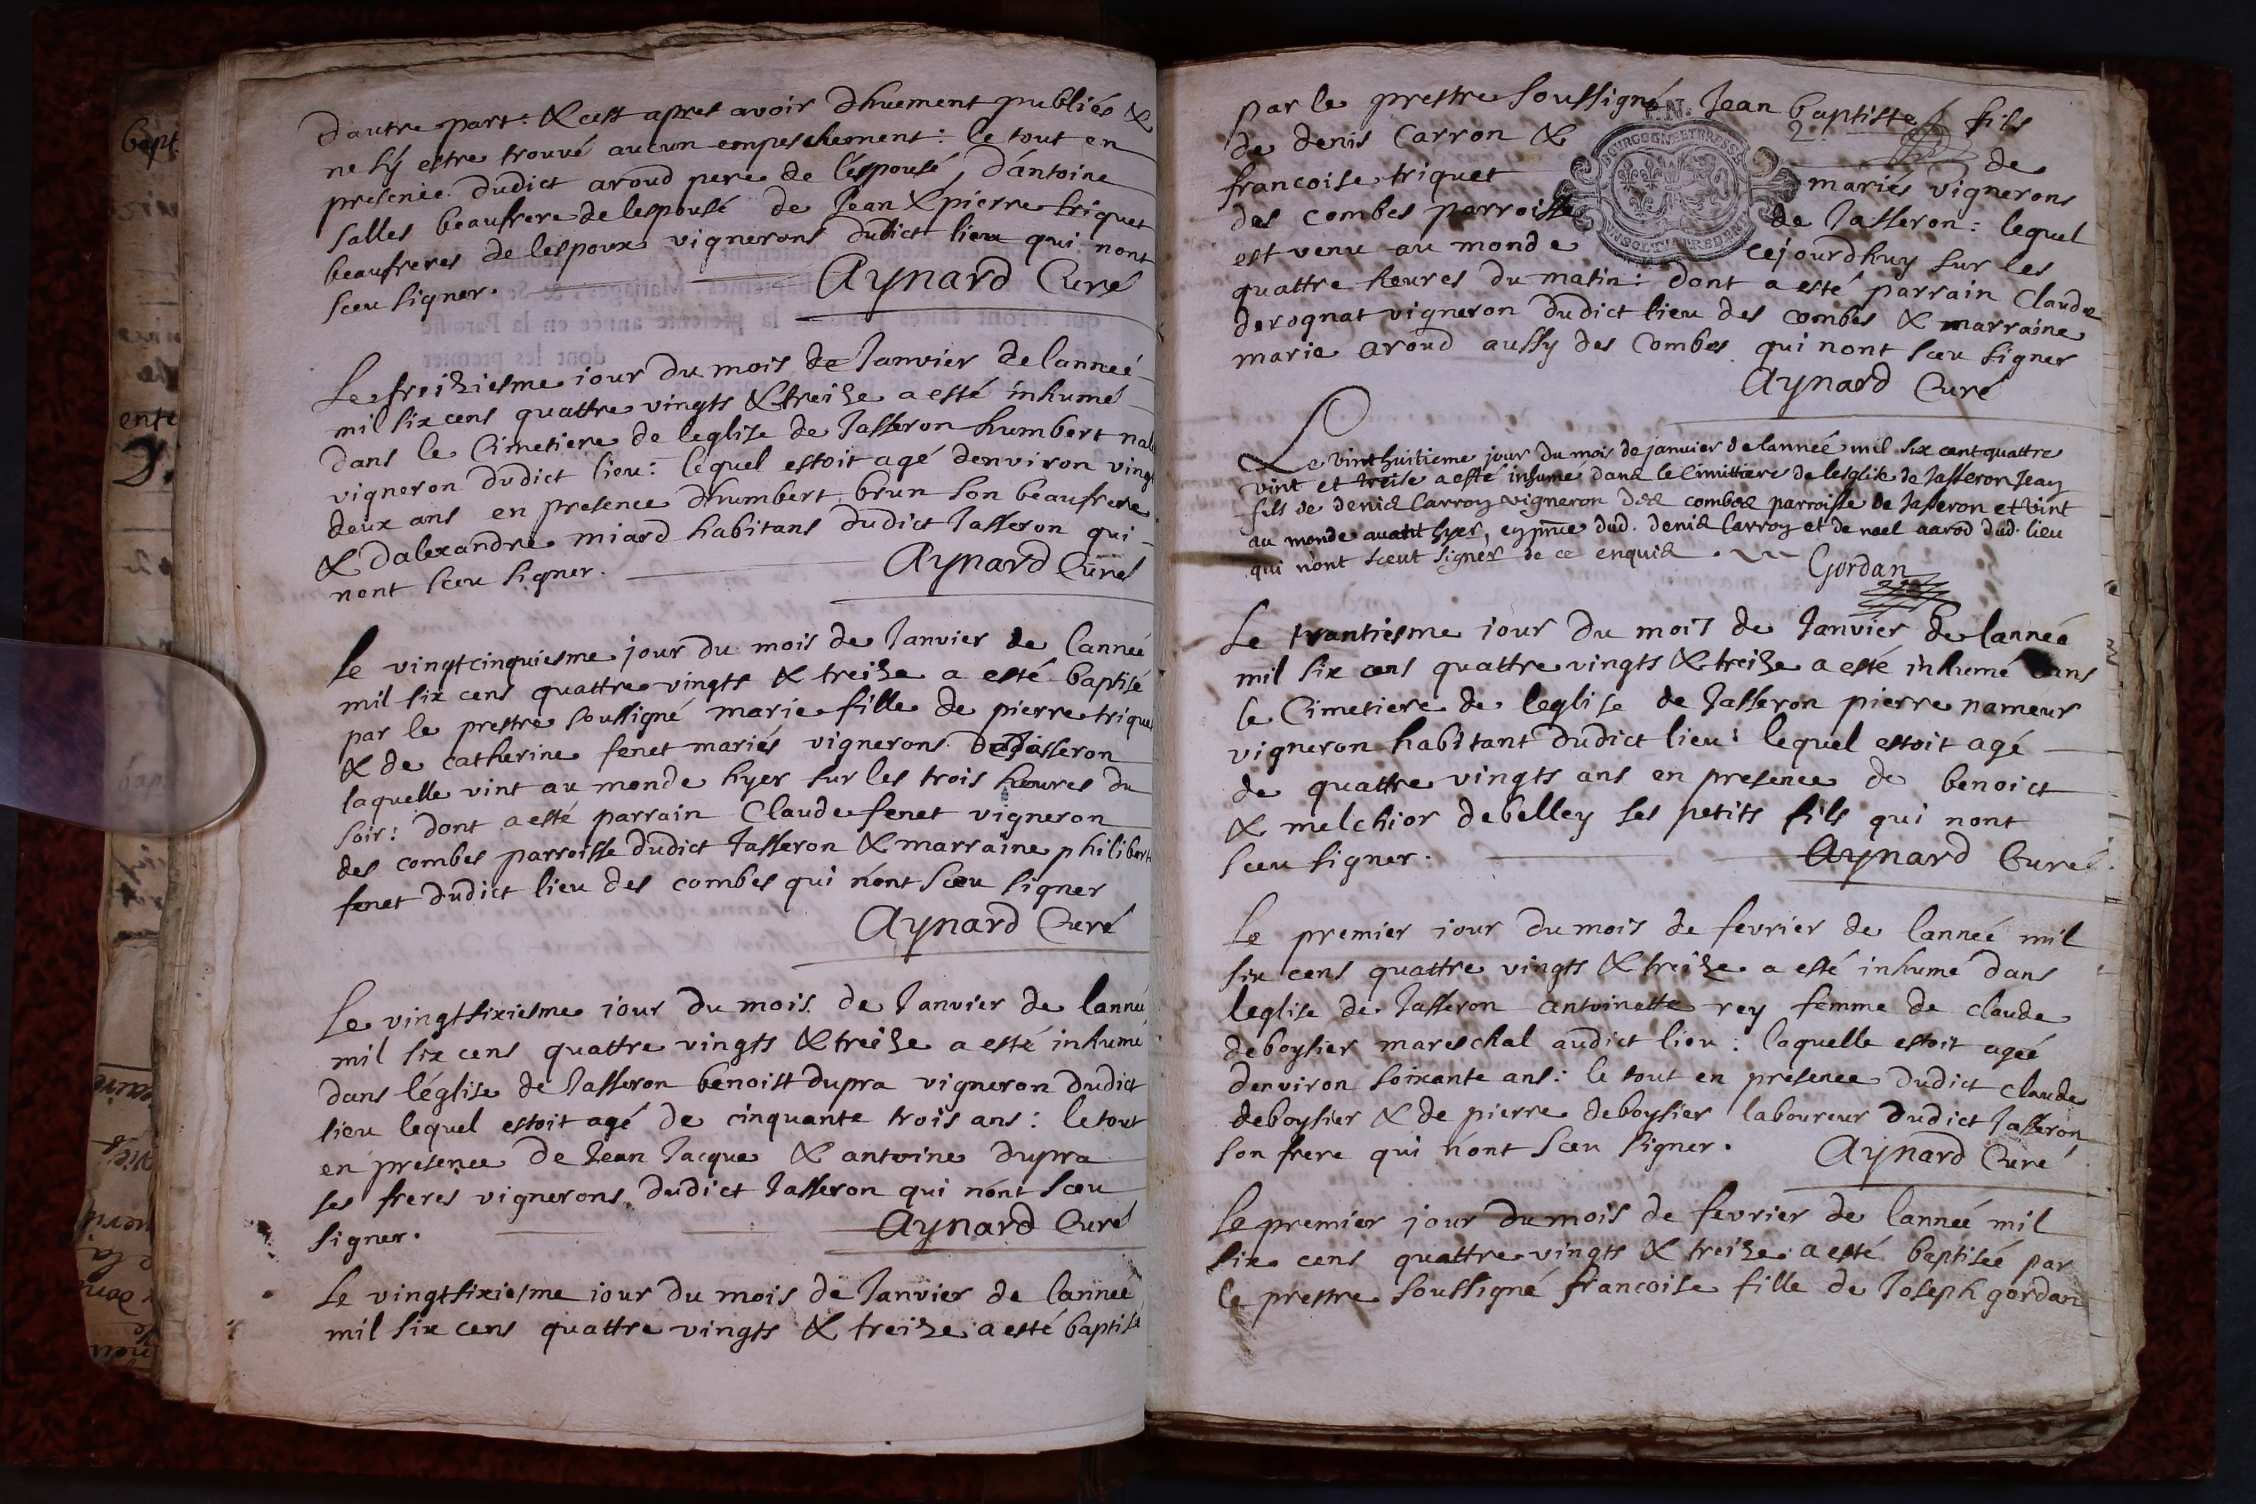 dautre part: & cest apres avoir dhuement publiés &
ne sÿ estre trouvé aucun empeschement: le tout en
presence dudict aroud pere de lespousé, dántoine
salles beaufrere de lespousé de Jean & pierre triquet
beaufreres de lespoux vignerons dudict lieu qui nont
sceu signer. Aynard Curé
Le treiziesme iour du mois de Janvier de lanneé
mil six cens quattre vingts & treize a esté inhumé
dans le Cimetiere de leglise de Jasseron humbert
vigneron dudict lieu: lequel estoit agé denviron vingt
deux ans en presence dhumbert brun son beaufrere
& dalexandre miard habitans dudict Jasseron qui
nont sceu signer. Aynard Curé
Le vingtcinquiesme jour du mois de Janvier de lannée
mil six cens quattre vingts & treize a esté baptisé
par le prestre soussigné marie fille de pierre trique
& de catherine fenet mariés vignerons de Jasseron
laquelle vint au monde hyer sur les trois heures du
soir: dont a esté parrain Claude fenet vigneron
des combes parroisse dudict Jasseron & marraine philibert
fenet dudict lieu des combes qui nónt sceu signer
Aynard Curé
Le vingtsixiesme iour du mois de Janvier de lanneé
mil six cens quattre vingts & treize a esté inhumé
dans léglise de Jasseron benoist dupra vigneron dudict
lieu lequel estoit agé de cinquante trois ans: le tout
en presence de Jean Jacque & antoine dupra
ses freres vignerons dudict Jasseron qui nónt sceu
signer. Aynard Curé
Le vingtsixiesme iour du mois de Janvier de lanneé
mil six cens quattre vingts & treize a esté baptisé
par le prestre soussigné Jean baptiste fils
2
de denis Carron & de
francoise triquet mariés vignerons
des combes parroisse de Jasseron: lequel
est venu au monde cejourdhuy sur les
quattre heures du matin: dont a esté parrain Claude
derognat vigneron dudict lieu des combes & marraine
marie aroud aussy des Combes qui nont sceu signer
Aynard Curé
Le vinthuitieme jour du mois de janvier de lanneé mil six cent quattre
vint et treise a esté inhume dans le Cimittiere de lesglise de Jasseron Jean
fils de denis Carron vigneron des combes parroisse de Jasseron et vint
au monde avant hyer, en pnce dud. denis Carron et de noel aarod dud. lieu
qui n'ont sceut signer de ce enquis. Gordan
Le trantiesme iour du mois de Janvier de lanneé
mil six cens quattre vingts & treize a esté inhumé dans
le Cimetiere de leglise de Jasseron pierre nameur
vigneron habitant dudict lieu: lequel estoit agé
de quattre vingts ans en presence de benoict
& melchior debelley ses petits fils qui nont
sceu signer. Aynard Curé
Le premier iour du mois de fevrier de lanneé mil
six cens quattre vingts & treize a esté inhumé dans
leglise de Jasseron antoinette rey femme de claude
deboysier mareschal audict lieu: laquelle estoit ageé
denviron soixante ans: le tout en presence dudict claude
deboysier & de pierre deboysier laboureur dudict Jasseron
son frere qui nónt sceu signer. Aynard Curé
Le premier jour du mois de fevrier de lanneé mil
six cens quattre vingts & treize a esté baptiseé par
le prestre soussigné francoise fille de Joseph gordan